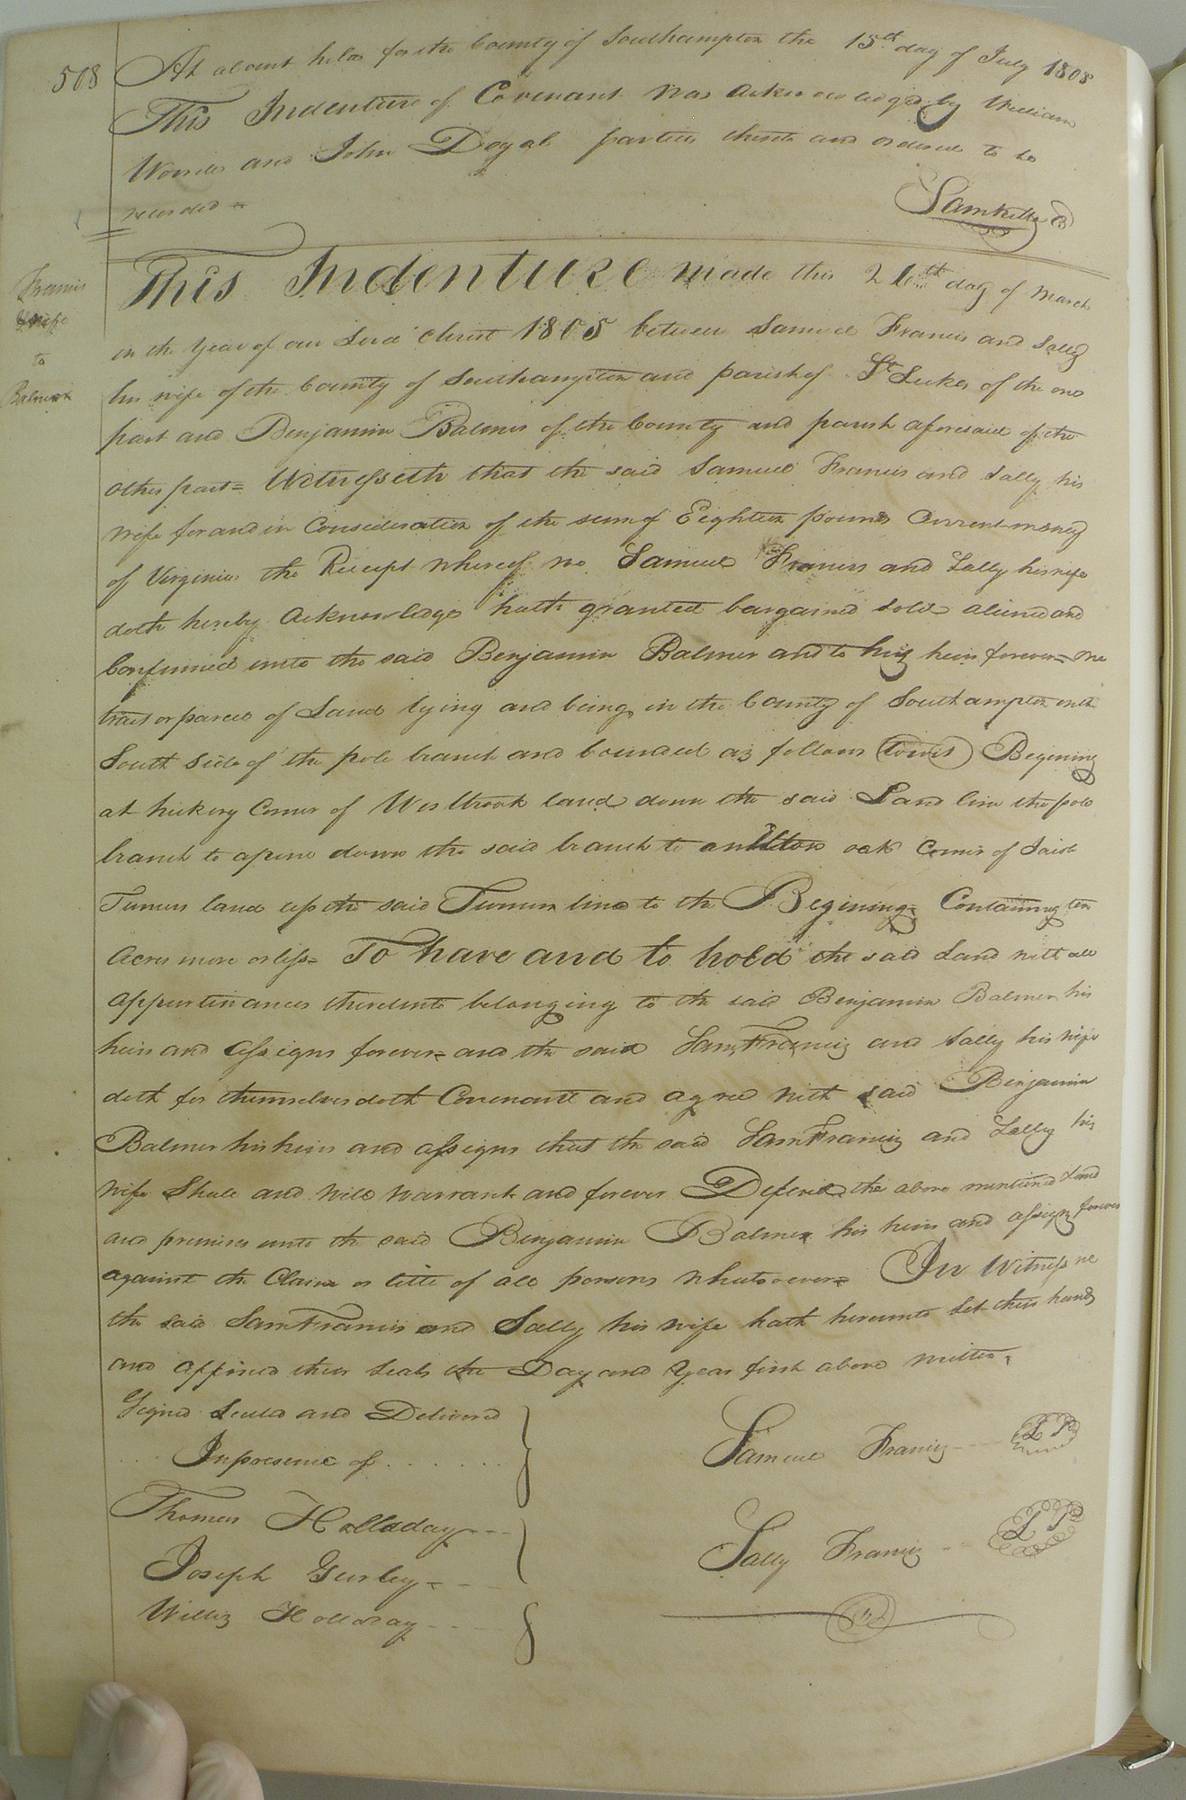 508
At a Court held for the County of Southampton the 15th day of July 1808
This Indenture of Covenant was acknowledged by William
and John Doyal parties thereto and ordered to be
recorded
Francis
& wife
to
Balmer
This Indenture made this 26th day of March
in the year of our Lord Christ 1805 between Samuel Francis and Sally
his wife of the County of Southampton and parish of St Lukes of the one
part and Benjamin Balmer of the County and parish aforesaid of the
other part = Witnesseth that the said Samuel Francis and Sally his
wife for and in Consideration of the sum of Eighteen pounds Current money
of Virginia the Receipt whereof we Samuel Francis and Sally his wife
doth hereby acknowledge hath granted bargained sold aliened and
Confirmed unto the said Benjamin Balmer and to his heirs forever = one
tract or parcel of Land lying and being in the County of Southampton on the
South side of the pole branch and bounded as follows (towit) Begining
at hickory Corner of Westbrook land down the said Land line the pole
branch to a pine down the said branch to an oak Corner of Said
Turners land up the said Turners line to the Begining Containing ten
acres more or less = To have and to hold the said Land with all
appurtinances thereunto belonging to the said Benjamin Balmer his
heirs and assigns forever = and the said Sam Francis and Sally his wife
doth for themselves doth Covenant and agree with said Benjamin
Balmer his heirs and assigns that the said Sam Francis and Sally his
wife Shall and will warrant and forever Defend the above mentioned Land
and premises unto the said Benjamin Balmer his heirs and assigns forever
against the Claim or title of all persons whatsoever = In Witness we
the said Sam Francis and Sally his wife hath hereunto Set their hands
and affixed their seals the Day and Year first above written.
Signd Seald and Delivered
In presence of
Samuel Francis LS
Thomas Holladay
Joseph Gurley
Sally Francis LS
Willis Holladay